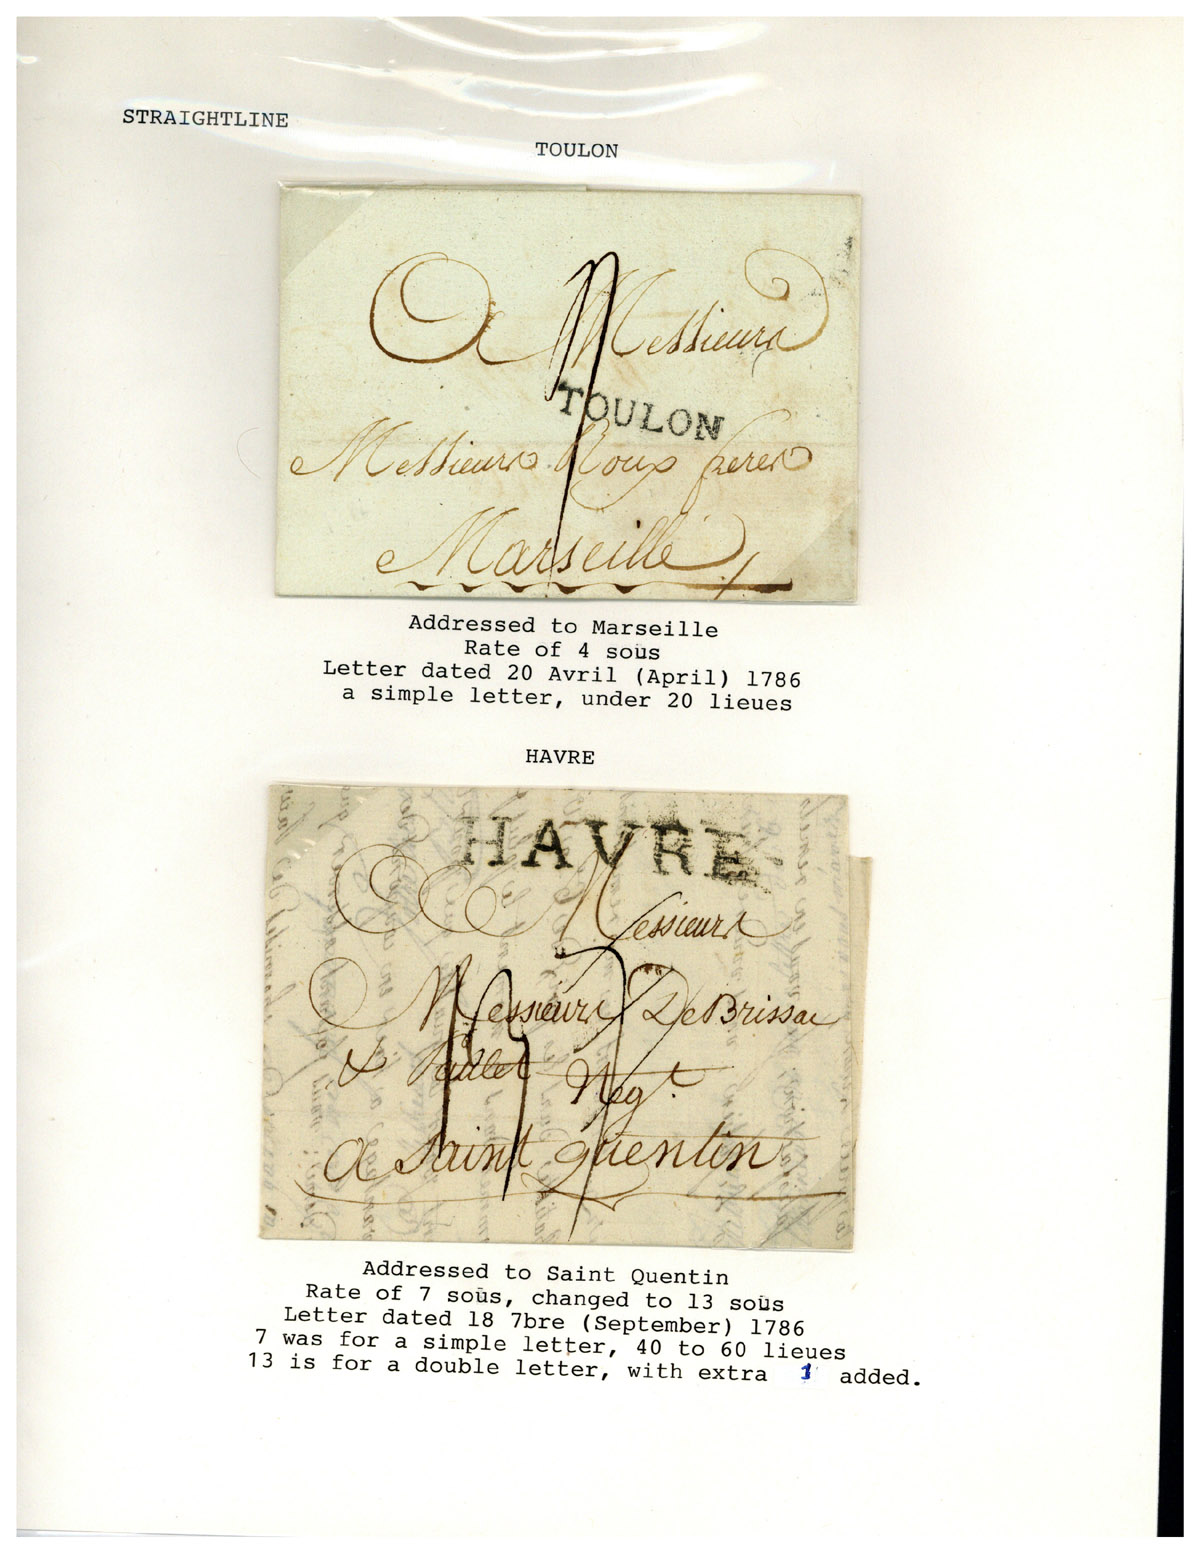 STRAIGHTLINE
TOULON
A Messieurs
TOULON
Messieurs Roux freres
Marseille
Addressed to Marseille
Rate of 4 sous
Letter dated 20 Avril (April) 1786
a simple letter, under 20 lieues
HAVRE
HAVRE
Messieurs
Messieurs De Brissac
&
Negt.
a Saint quentin
Addressed to Saint Quentin
Rate of 7 sous, changed to 13 sous
Letter dated 18 7bre (September) 1786
7 was for a simple letter, 40 to 60 lieues
13 is for a double letter, with extra 1 added.